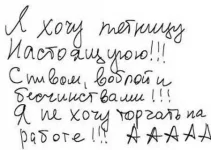 Я хочу пятницу
Настоящую!!!
С твоем, воблой и
бесчинствами!!!
Я не хочу торчать на
работе!!! ААААА